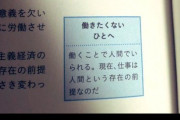 意義を欠い
に労働させ
主義経済の
存在の前提
さき変わっ
働きたくない
ひとへ
働くことで人間でい
られる。現在、仕事は
人間という存在の前
提なのだ